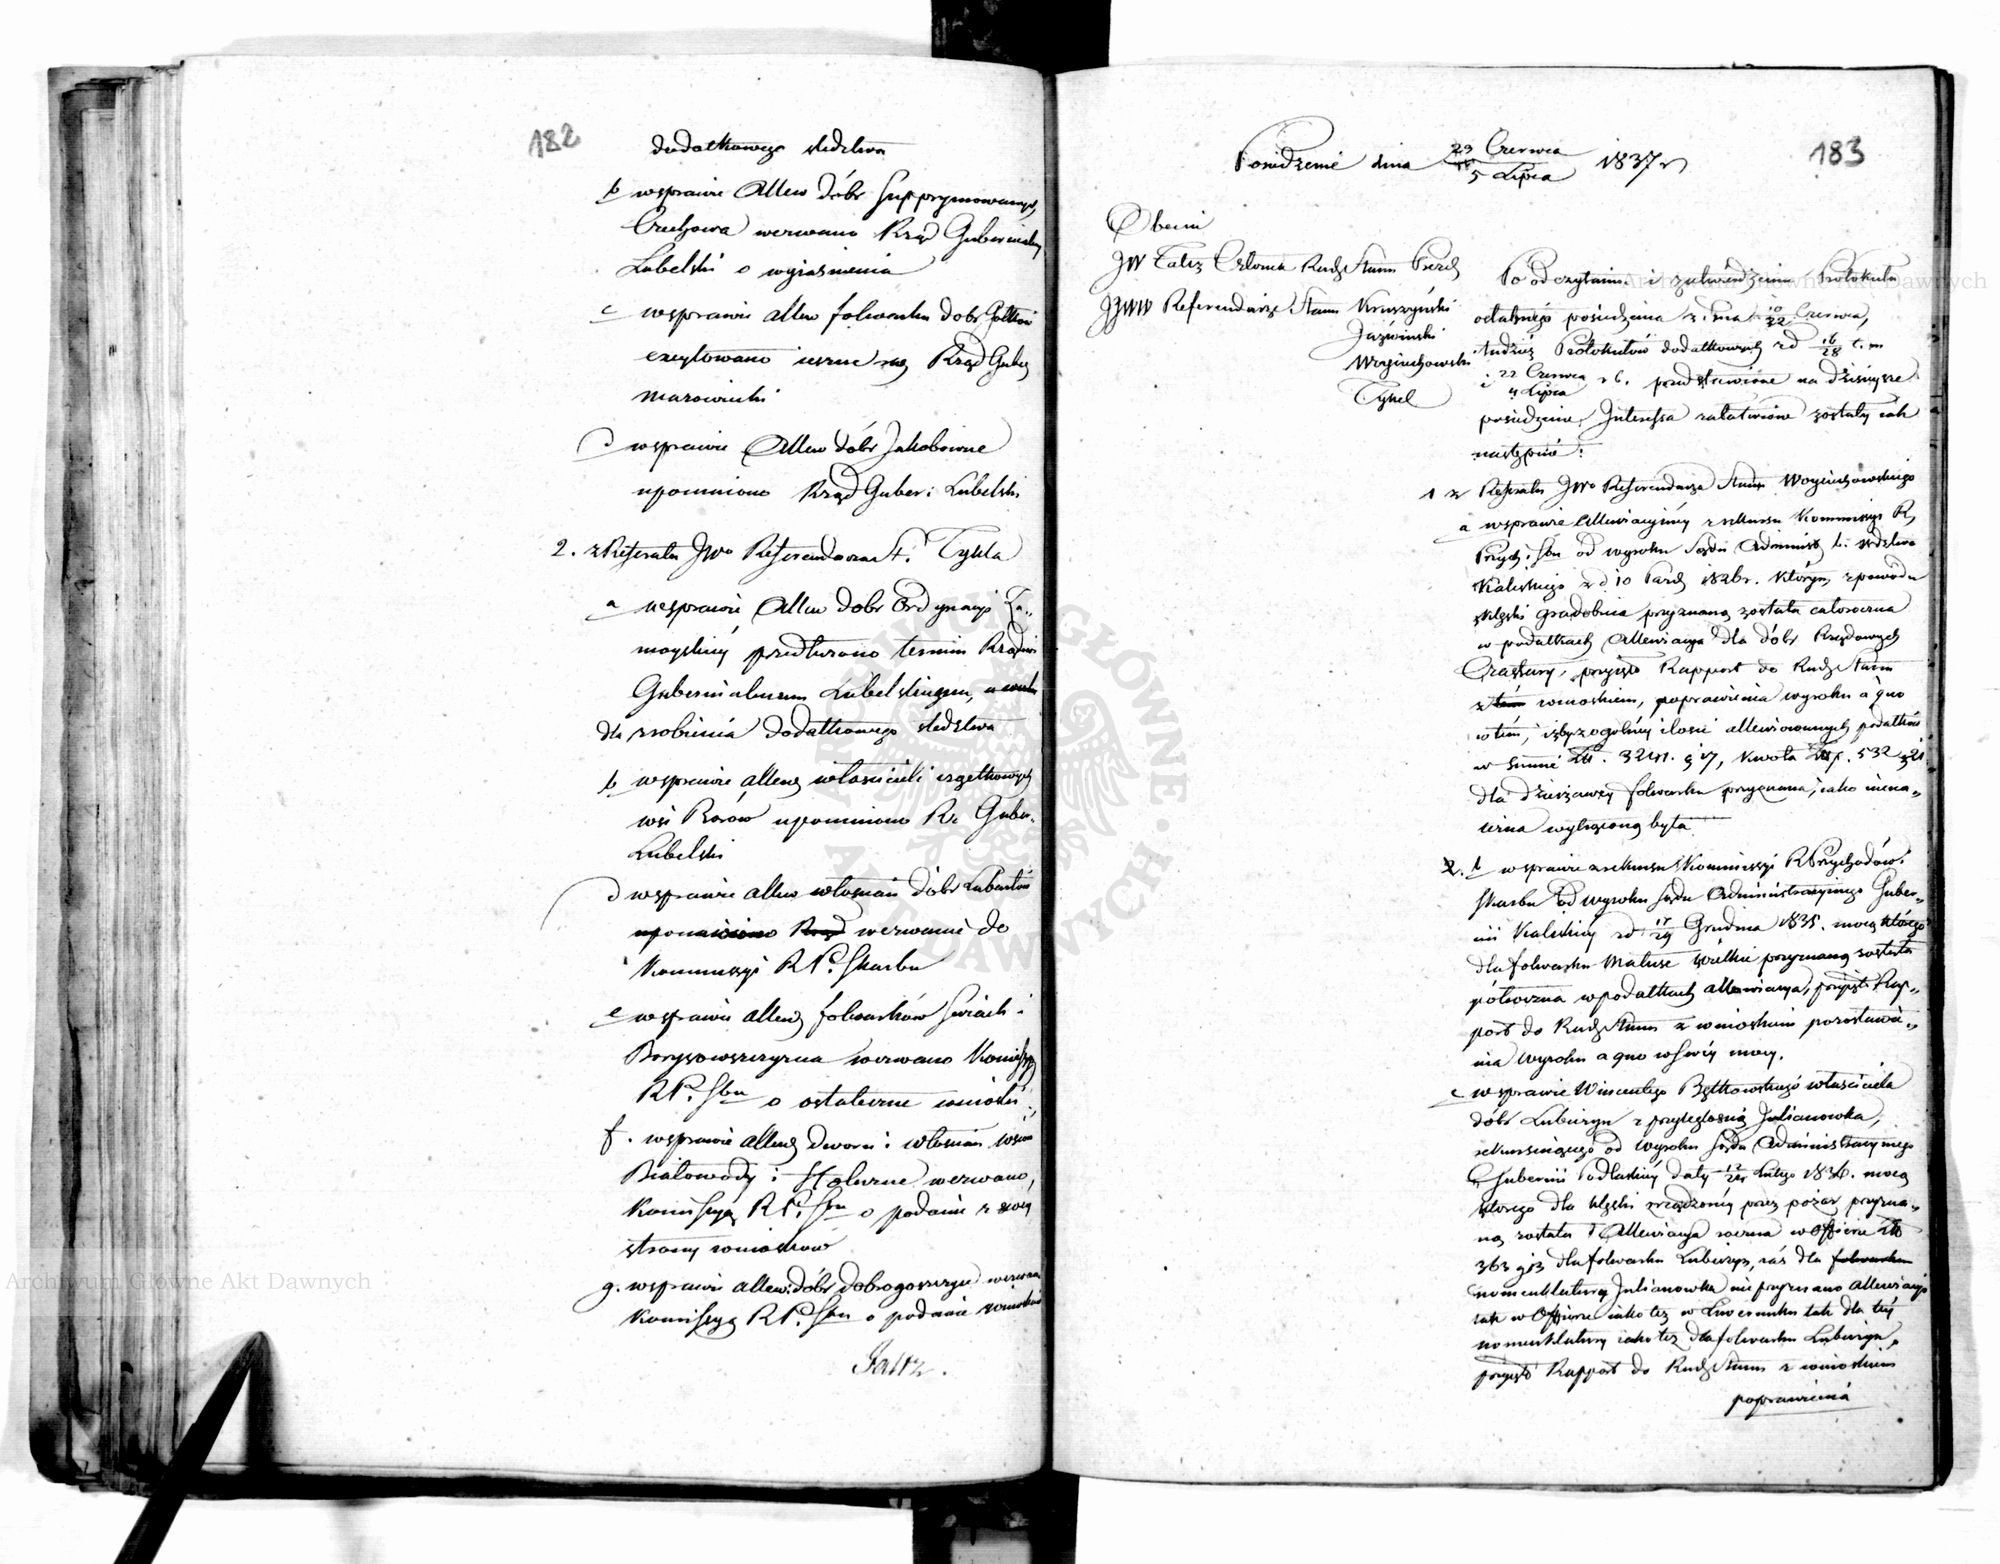 182
dodatkowego śledztwa
b w sprawie Allew dóbr Supprymowanych
wezwano Rząd Gubernialny
Lubelski o wyjaśnienia
c w sprawie allew folwarku dobr
excytowano Rząd Guber
Mazowiecki
d w sprawie Allew dóbr Jakobowice
upomniono Rząd Guber: Lubelski
2. z Referatu JWo Referendarza St. Tykla
a w sprawie Allew dobr Ordynacyi Za„
moyskiéy przedłużono termin Rządowi
Gubernialnemu Lubelskiemu,
dla zrobienia dodatkowego śledztwa
b w sprawie allew właścicieli
wsi upomniono R. Guber.
Lubelski
d w sprawie allew włościan dóbr Lubartów
upomniono Rząd wezwanie do
Kommissyi R P. Skarbu
e w sprawie allew folwarków i
wezwano Komissyą
R P. Sbu o ostateczne wnioski
f. w sprawie allew dworu i włościan
Białowody i wezwano
Komissyą R P. Sbu o podanie z swéy
strony wniosków
g. w sprawie allew: dóbr wezwano
Komissyą R P. Sbu o podanie wniosków
183
Posiedzenie dnia 23 Czerwca / 5 Lipca 1837 r
Obecni
JW Członek Rady Stanu
JJWW Referendarze Stanu Kruszyński
Jaźwiński
Woyciechowski
Tykel
Po odczytaniu i zatwierdzeniu Protokułu
ostatniego posiedzenia z dnia 10/22 Czerwca,
tudzież Protokułów dodatkowych z d 16/28 t. m
i 22 Czerwca / 4 Lipca r b. przedstawione na dzisieysze
posiedzenie Interessa załatwione zostały iak
następuie:
1 z Referatu JWo Referendarza Stanu Woyciechowskiego
a w sprawie Allewiacyjnéy z rekursu Kommissyi R,
Przych: Sbu od wyroku Sądu Administ b.
Kaliskiego z d 10 Pazdz 1826 r. którym z powodu
klęski gradobicia przyznaną została całoroczna
w podatkach Allewiacya dla dóbr Rządowych
przyięto Rapport do Rady Stanu
z wnioskiem, poprawienia wyroku a quo
w tém, iżby z ogólnéy ilości allewiowanych podatków
w summie Zł. 3241. g 17, kwota Złp. 532 g 21
dla dzierżawcy folwarku przyznana, iako
wyłączoną była
2. b w sprawie z rekursu Kommissyi R Przychodów i
Skarbu od wyroku Sądu Administracyinego Guber„
nii Kaliskiéy z d 17/29 Grudnia 1835. mocą którego
dla folwarku Małusze wielkie przyznaną została
półroczna w podatkach allewiacya, przyięto Rap„
port do Rady Stanu z wnioskiem pozostawie„
nia wyroku a quo w swéy mocy.
c w sprawie Wincentego Bętkowskiego właściciela
dóbr Lubiczyn z przyległością Julianowka,
rekursuiącego od wyroku Sądu Administracyinego
Gubernii Podlaskiéy daty 12/24 Lutego 1836. mocą
którego dla klęski zrządzonéy przez pożar przyzna„
ną została Allewiacya roczna w Offierze Zł
363 g 13 dla folwarku Lubiczyn, zaś dla folwarku
nomenklatury Julianowka nie przyznano allewiacyi
tak w Offierze iako też w Liwerunku tak dla téy
nomenklatury iako też dla folwarku Lubiczyn,
przyięto Rapport do Rady Stanu z wnioskiem
poprawienia
Archiwum Główne Akt Dawnych
Archiwum Główne Akt Dawnych
ARCHIWUM GŁÓWNE AKT DAWNYCH